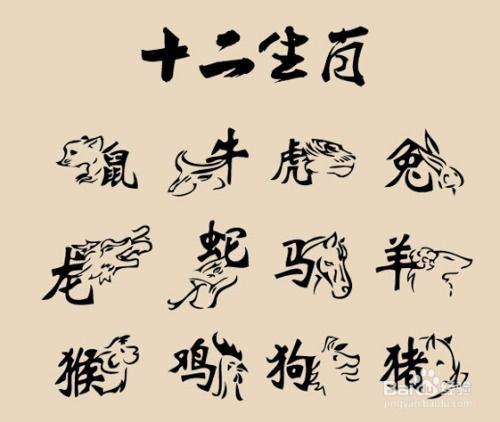 十二生肖
鼠 牛 虎 兔
龙 蛇 马 羊
猴 鸡 狗 猪
Baidu经验
jingyan.baidu.com